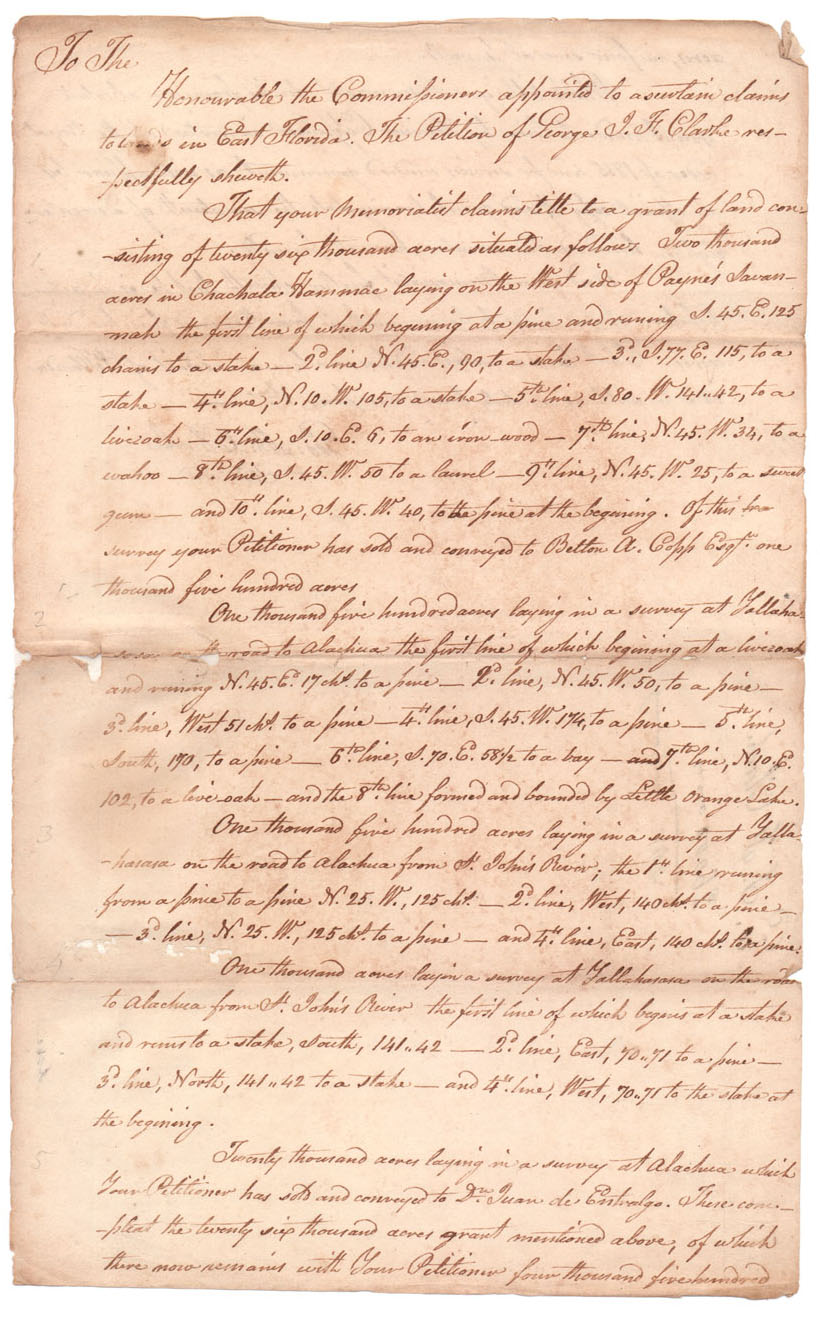 To The
Honourable the Commissioners appointed to ascertain claims
to lands in East Florida. The Petition of George J. F. Clarke res-
-pectfully sheweth.
That your Memorialist claims title to a grant of land con-
-sisting of twenty six thousand acres situated as follows Two thousand
acres in Chachala Hammac laying on the West side of Payne's Savan-
nah the first line of which begining at a pine and runing S. 45. E. 125
chains to a stake — 2d. line N. 45. E., 90, to a stake — 3d., S. 77. E. 115, to a
stake — 4th. line, N. 10. W. 105, to a stake — 5th. line, S. 80. W. 141.. 42, to a
liveoak — 6th. line, S. 10. E. 6, to an iron-wood — 7th. line, N. 45. W. 34, to a
wahoo — 8th. line, S. 45. W. 50 to a laurel — 9th. line, N. 45. W. 25, to a sweet
gum — and 10th. line, S. 45. W. 40, to the pine at the begining. Of this
survey your Petitioner has sold and conveyed to Belton A. Copp Esqr. one
thousand five hundred acres
2 One thousand five hundred acres laying in a survey at Yallaha-
on the road to Alachua the first line of which begining at a liveoak
and runing N. 45. E. 17 chs. to a pine — 2d. line, N. 45. W. 50, to a pine —
3d. line, West 51 chs. to a pine — 4th. line, S. 45. W. 174, to a pine — 5th. line,
South, 170, to a pine — 6th. line, S. 70. E. 58 1/2 to a bay — and 7th. line, N. 10. E.
102, to a live-oak — and the 8th. line formed and bounded by Little Orange Lake.
3 One thousand five hundred acres laying in a survey at Yalla-
-hasasa on the road to Alachua from St. John's River; the 1st. line runing
from a pine to a pine N. 25. W., 125 chs. — 2d. line, West, 140 chs. to a pine —
— 3d. line, N. 25. W., 125 chs. to a pine — and 4th. line, East, 140 chs. to a pine.
4 One thousand acres layin a survey at Yallahasasa on the road
to Alachua from St. John's River the first line of which begins at a stake
and runs to a stake, South, 141.. 42 — 2d. line, East, 70.. 71 to a pine —
3d. line, North, 141.. 42 to a stake — and 4th. line, West, 70.. 71 to the stake at
the begining.
5 Twenty thousand acres laying in a survey at Alachua which
Your Petitioner has sold and conveyed to Dn. Juan de Entralgo. These com-
-pleat the twenty six thousand acres grant mentioned above, of which
there now remains with Your Petitioner four thousand five hundred